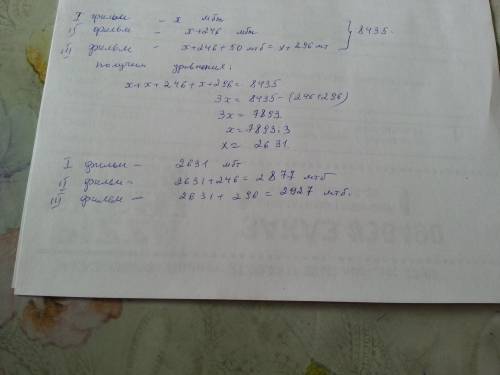 I фильм - x мбт
II фильм - x+246 мбт
III фильм - x+246+50 мтб = x+296 мт } 8435.
получим уравнения:
x+x+246+x+296=8435
3x = 8435-(246+296)
3x = 7893
x=7893:3
x= 2631.
I фильм - 2631 мбт
II фильм - 2631+246=2877 мтб
III фильм - 2631+296=2927 мтб.